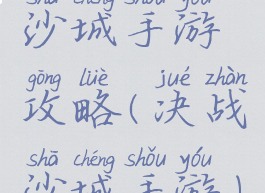 shā chéng shǒu yóu
沙城手游
gōng lüè jué zhàn
攻略(决战
shā chéng shǒu yóu
沙城手游)